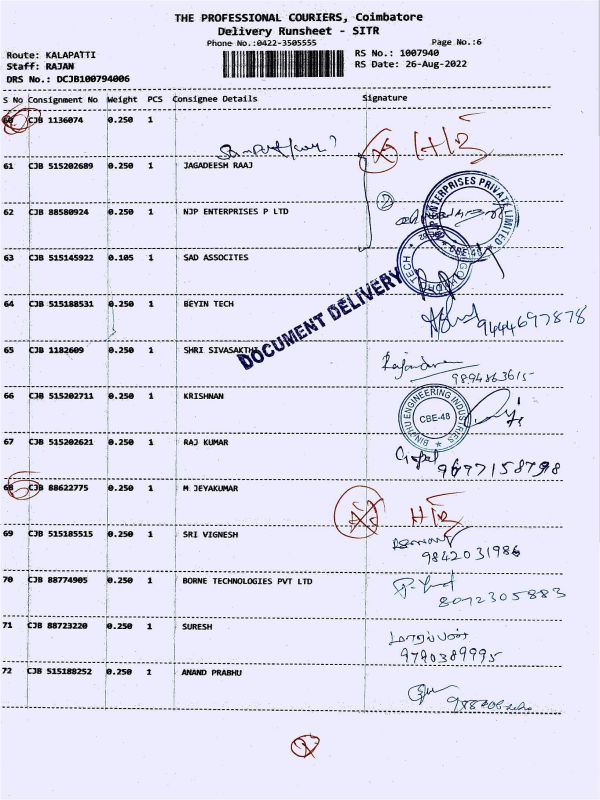 THE PROFESSIONAL COURIERS, Coimbatore
Delivery Runsheet - SITR
Phone No.:0422-3505555 Page No.:6
Route: KALAPATTI RS No.: 1007940
Staff: RAJAN RS Date: 26-Aug-2022
DRS No.: DCJB100794006
S No Consignment No Weight PCS Consignee Details Signature
60 CJB 1136074 0.250 1
61 CJB 515202689 0.250 1 JAGADEESH RAAJ
2
62 CJB 88580924 0.250 1 NJP ENTERPRISES P LTD
ENTERPRISES PRIVATE LIMITED
CBE-48
63 CJB 515145922 0.105 1 SAD ASSOCITES
TECH
DOCUMENT DELIVERY
64 CJB 515188531 0.250 1 BEYIN TECH
9444697878
65 CJB 1182609 0.250 1 SHRI SIVASAKTHI
9894863615
66 CJB 515202711 0.250 1 KRISHNAN
BINZHU ENGINEERING INDUSTRIES
CBE-48
67 CJB 515202621 0.250 1 RAJ KUMAR
Gopal
9697158798
68 CJB 88622775 0.250 1 M JEYAKUMAR
69 CJB 515185515 0.250 1 SRI VIGNESH
9842031986
70 CJB 88774905 0.250 1 BORNE TECHNOLOGIES PVT LTD
8072305883
71 CJB 88723220 0.250 1 SURESH
மாறப்பன்
9790389995
72 CJB 515188252 0.250 1 ANAND PRABHU